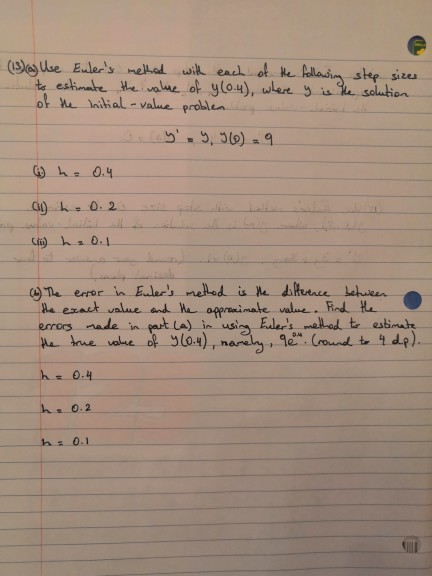 (13)(a) Use Euler's method with each of the following step sizes
to estimate the value of y(0.4), where y is the solution
of the initial-value problem
y' = y, y(0) = 9
(i) h = 0.4
(ii) h = 0.2
(iii) h = 0.1
(b) The error in Euler's method is the difference between
the exact value and the approximate value. Find the
errors made in part (a) in using Euler's method to estimate
the true value of y(0.4), namely, 9e^0.4. (round to 4 dp).
h = 0.4
h = 0.2
h = 0.1